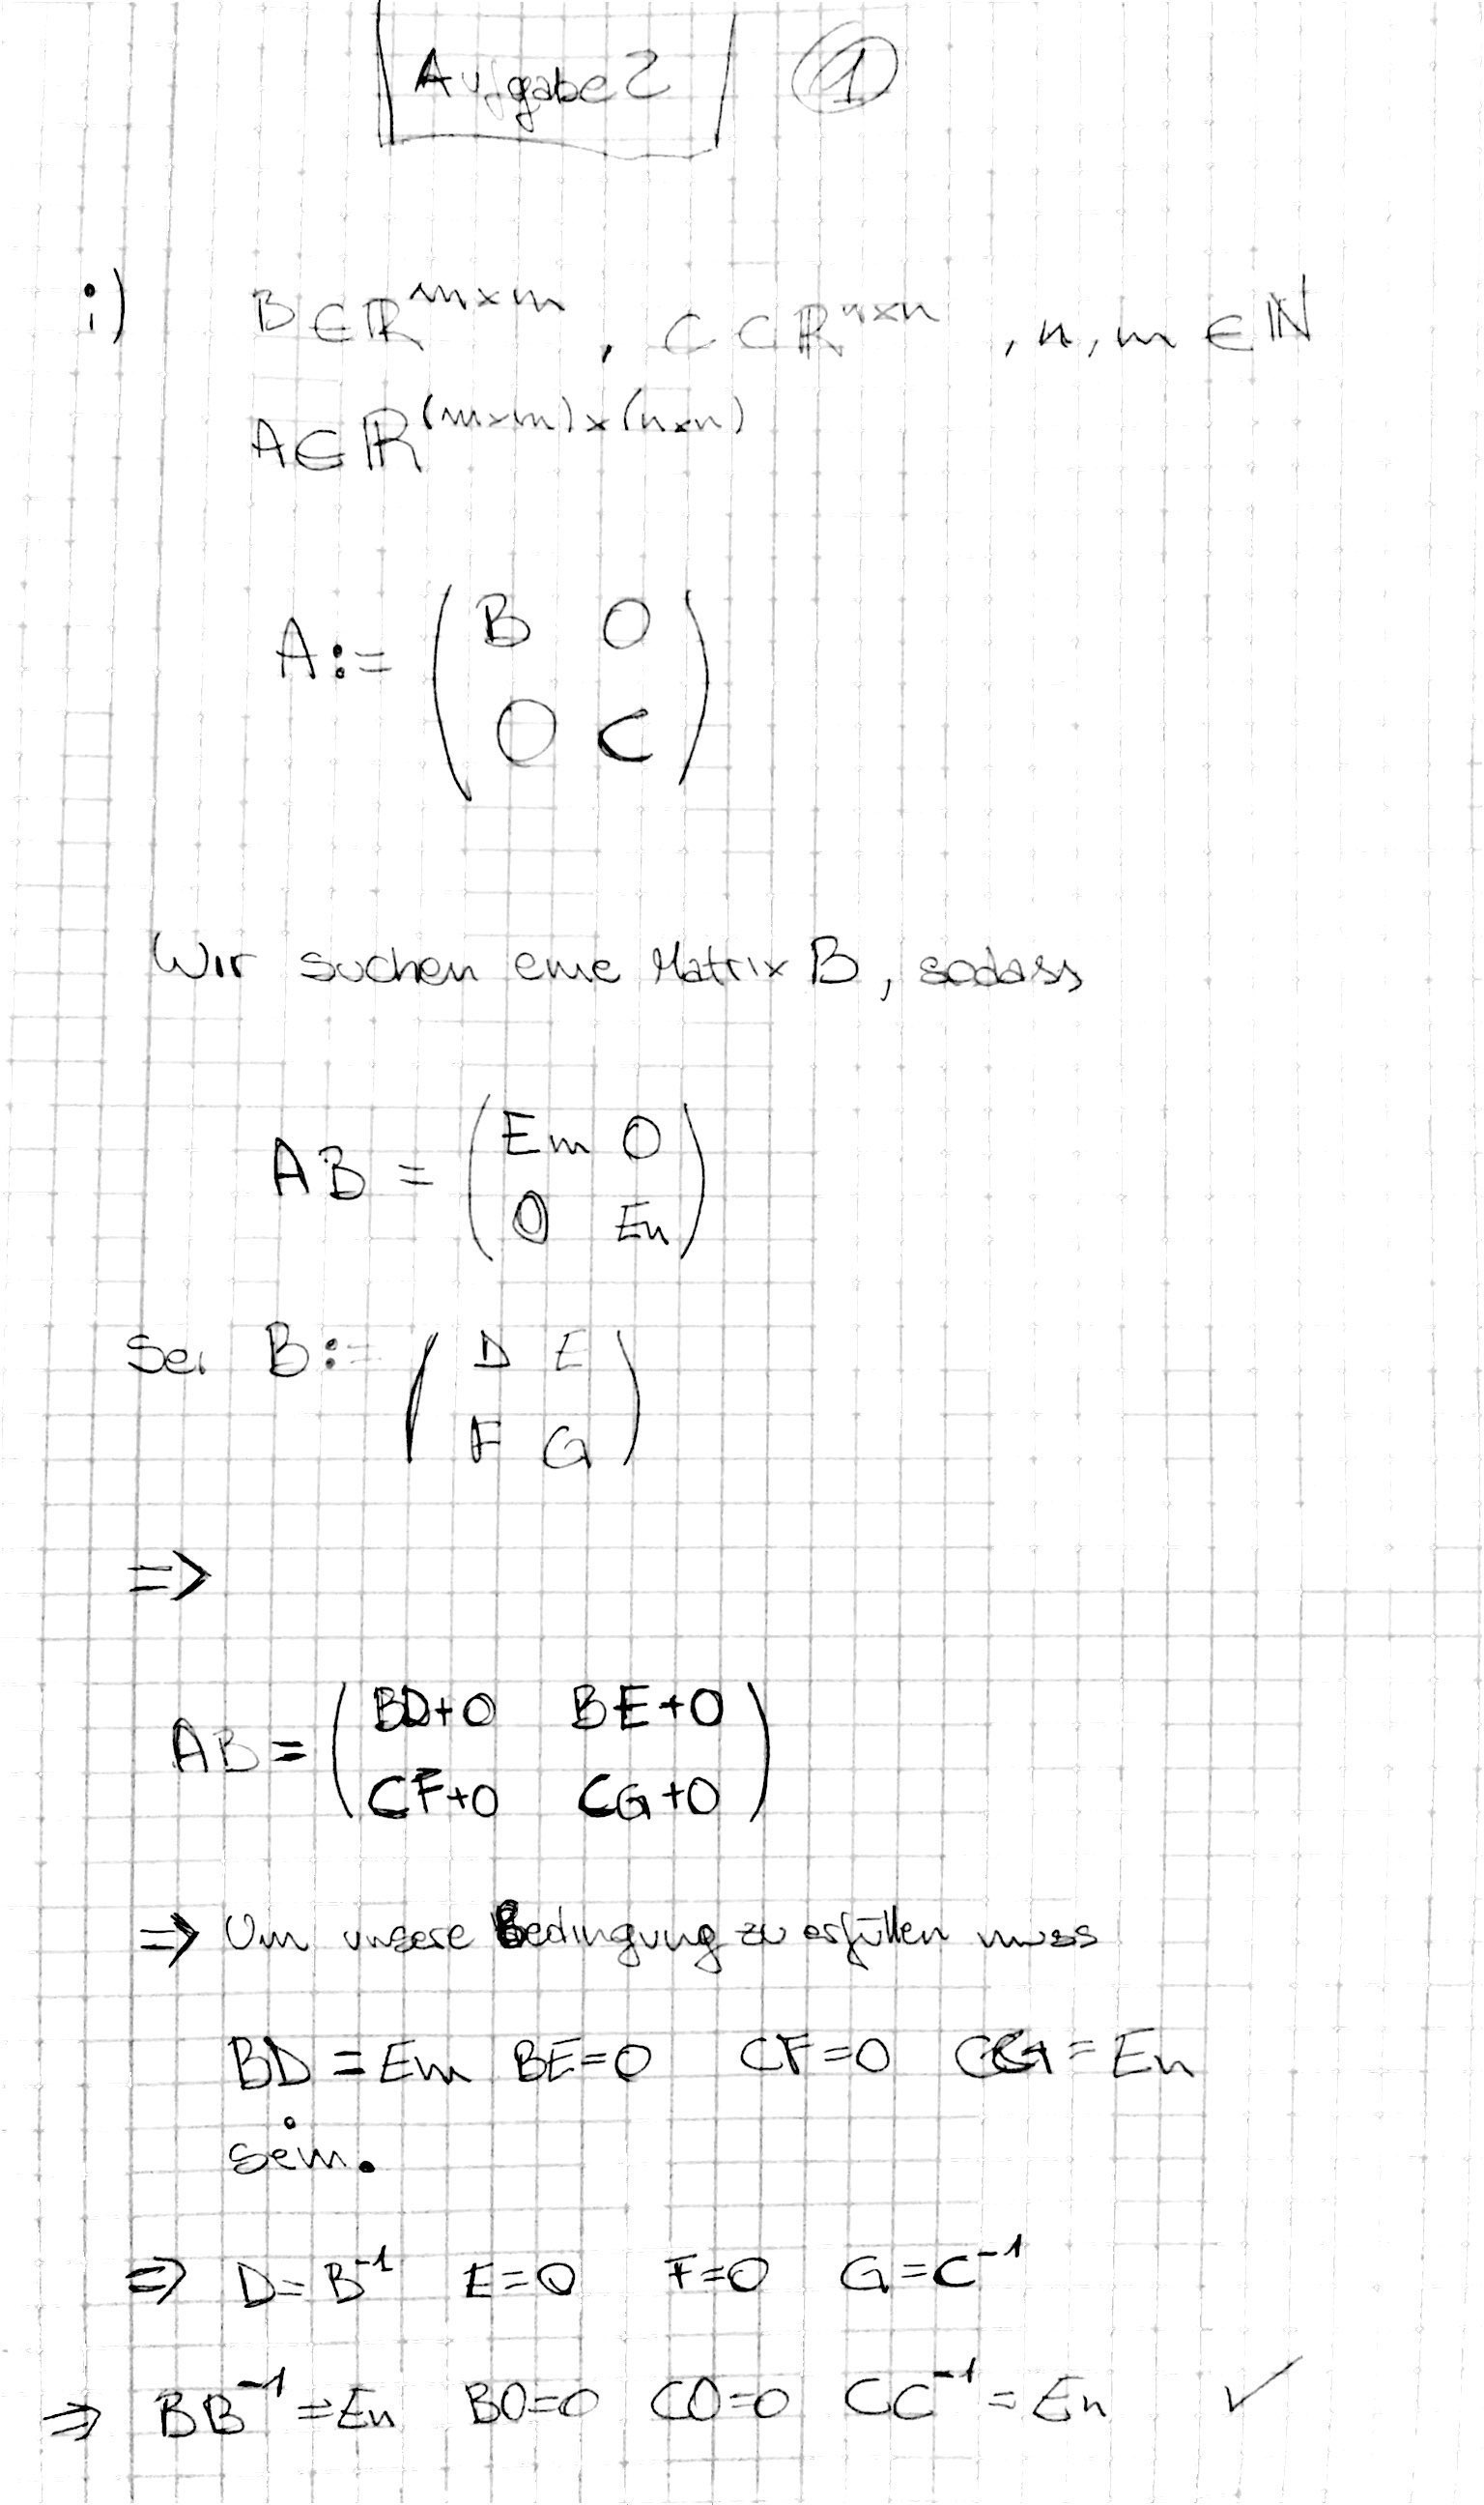 Aufgabe 2 ①
i) B∈ℝ^{m×m}, C∈ℝ^{n×n}, n,m∈ℕ
A∈ℝ^{(m×m)×(n×n)}
A:= (B 0
0 C)
Wir suchen eine Matrix B, sodass
AB = (Em 0
0 En)
Sei B:= (D E
F G)
=>
AB = (BD+0 BE+0
CF+0 CG+0)
=> Um unsere Bedingung zu erfüllen muss
BD = Em BE=0 CF=0 CG = En
sein.
=> D=B⁻¹ E=0 F=0 G=C⁻¹
=> BB⁻¹=En B0=0 C0=0 CC⁻¹=En ✓